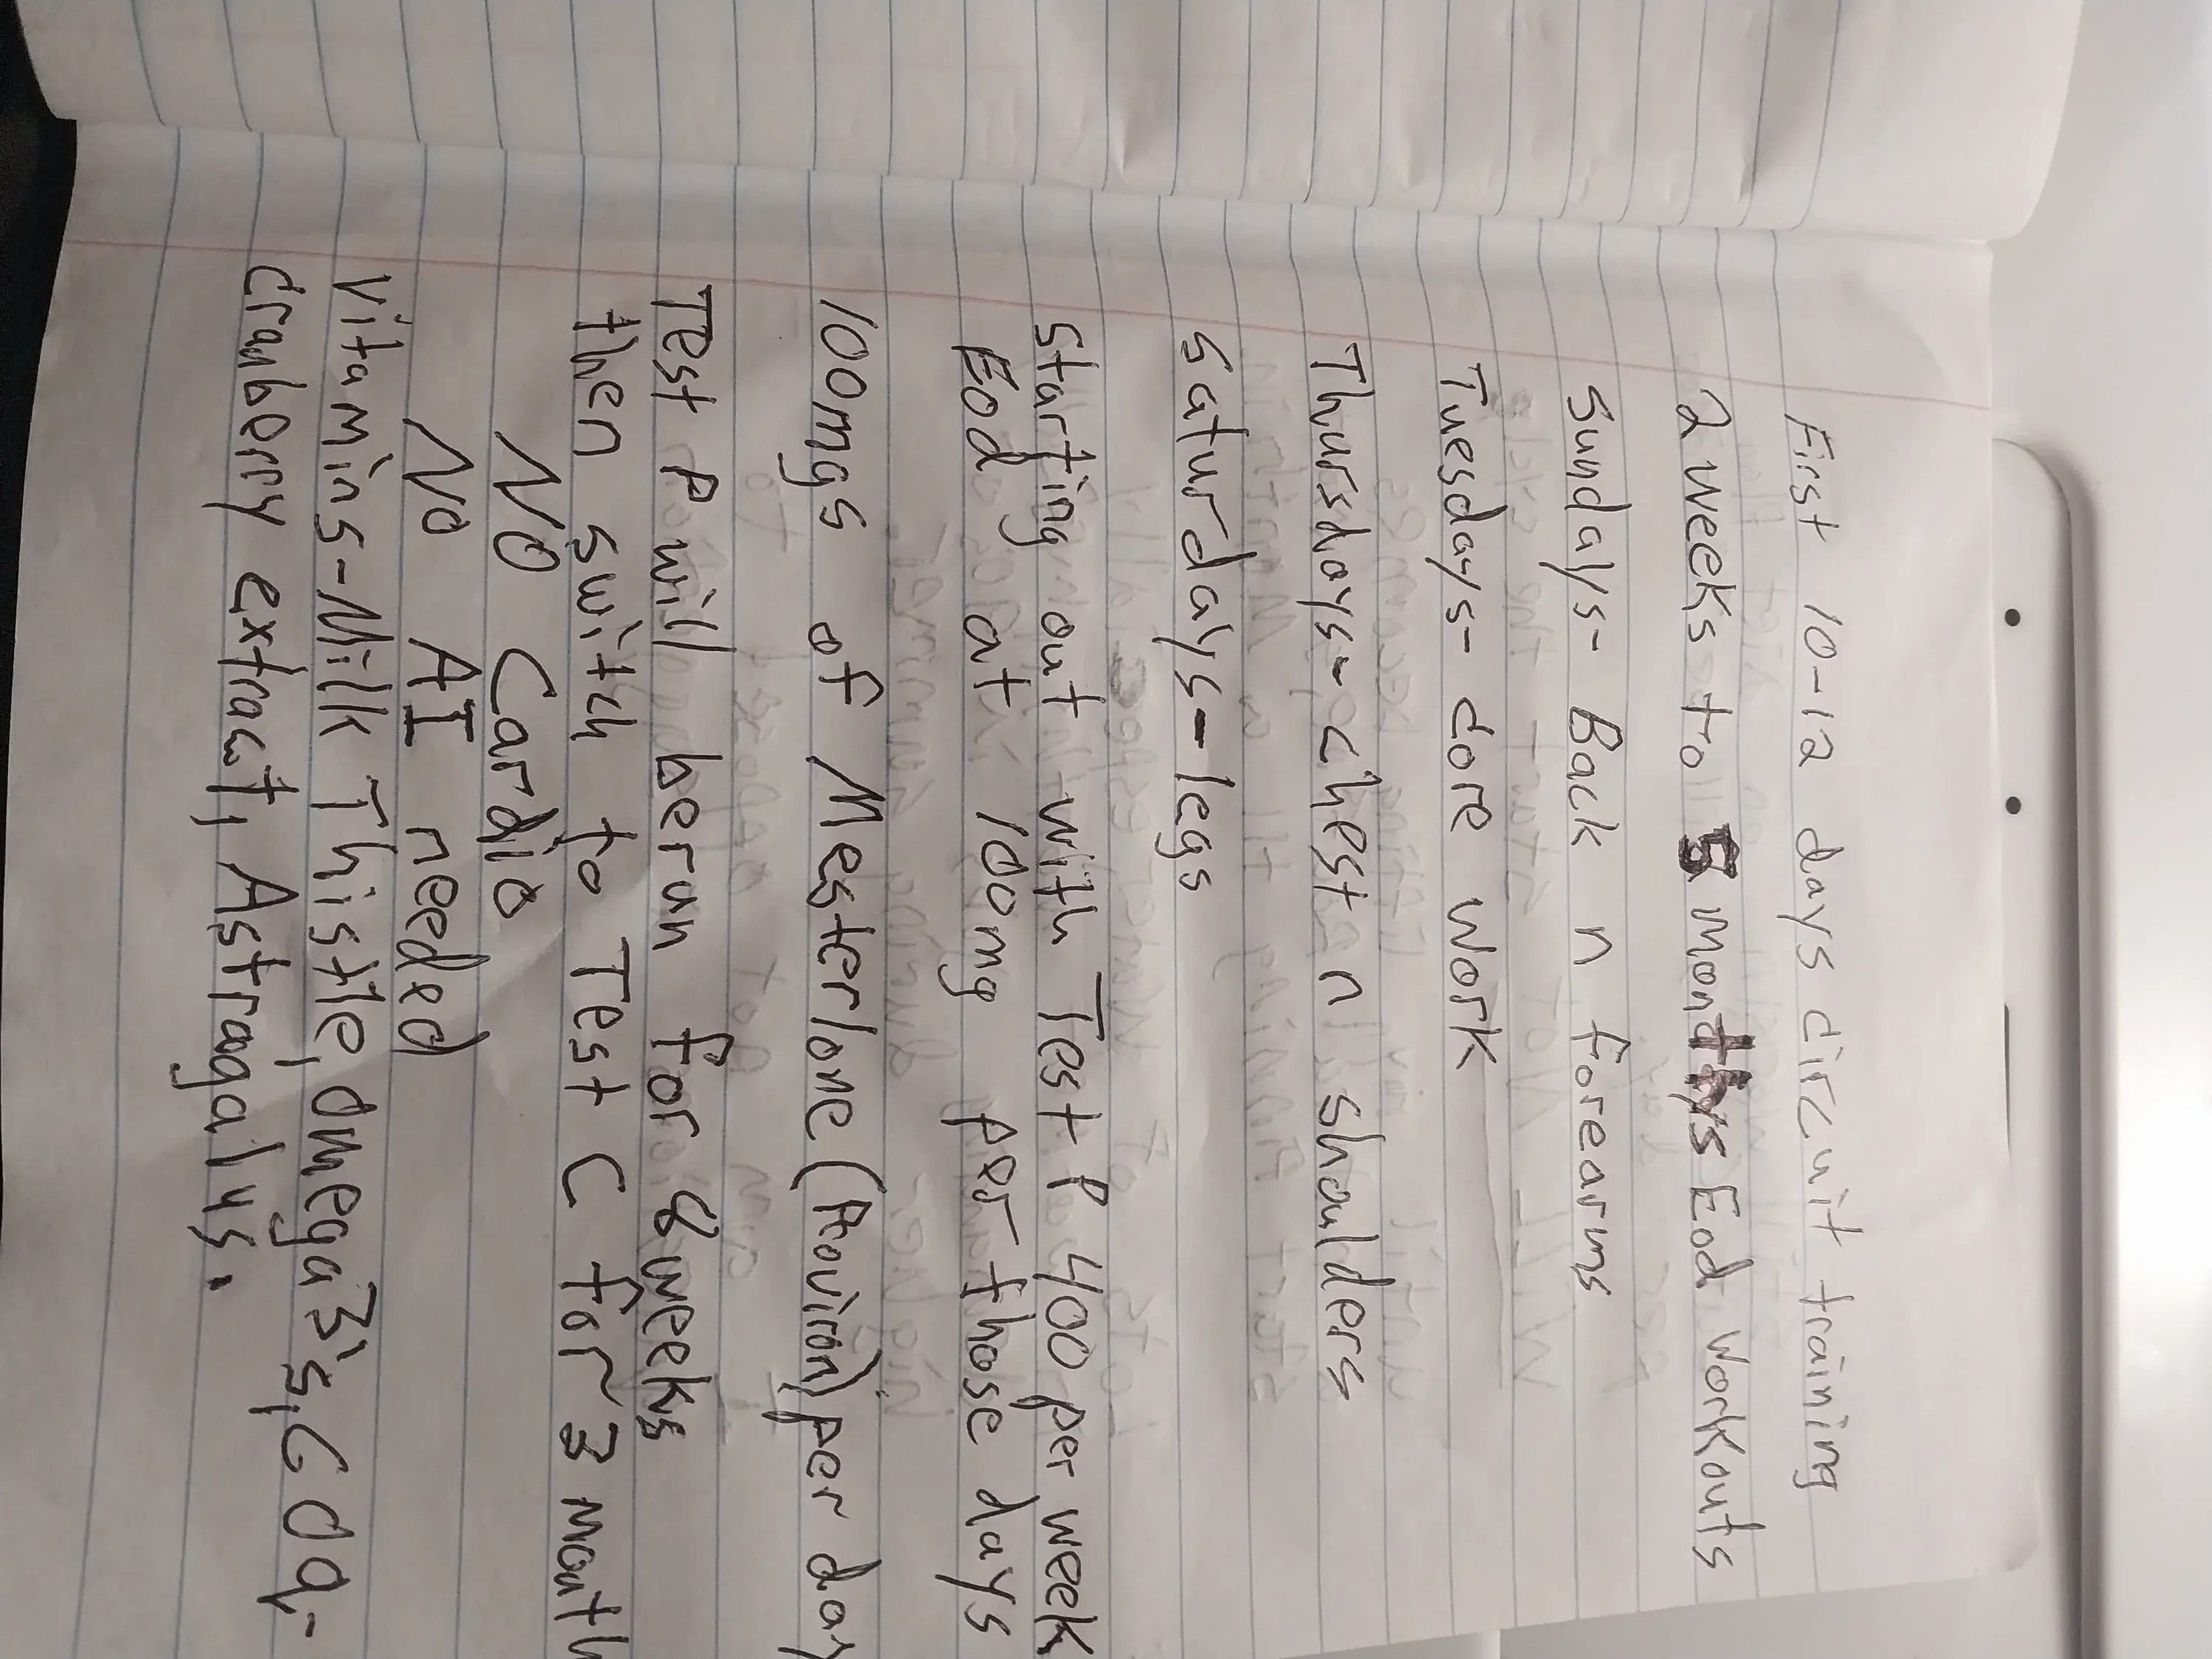 First 10-12 days circuit training
2 weeks to 5 months Eod workouts
Sundays- Back n forearms
Tuesdays- core work
Thursdays- chest n shoulders
Saturdays- legs
starting out with Test P 400 per week
Eod at 100mg per those days
100mgs of Mesterlone (Proviron) per day
Test P will be run for 8 weeks
then switch to Test C for 3 month
NO Cardio
No AI needed
Vitamins-Milk Thistle, omega 3's, COQ,-
cranberry extract, Astragalus.